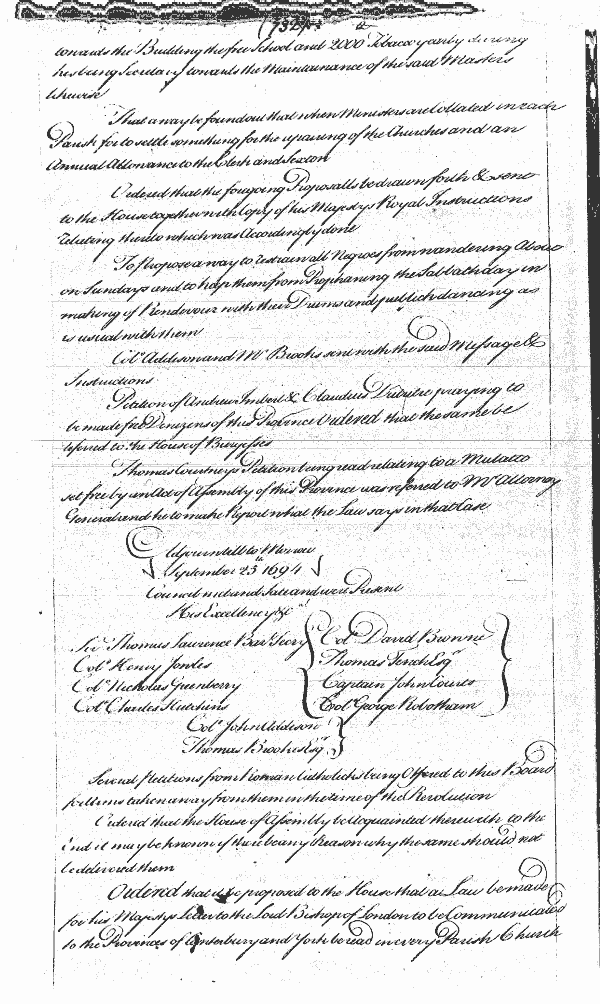 (732)
towards the Building the free School and 2000 Tobacco yearly during
his being Secretary towards the Maintainance of the said Masters
likewise
That a way be found out that when Ministers are Collated in each
Parish for to settle something for the repairing of the Churches and an
Annual Allowance to the Clerk and Sexton
Ordered that the foregoing Proposalls be drawn forth & sent
to the House together with Copy of his Majestys Royal Instructions
relating thereto which was Accordingly done
To Propose a way to restrain all Negroes from wandering About
on Sundays and to keep them from Prophaning the Sabbath day in
making of Rendevour with their Drums and publick dancing as
is usual with them
Colo. Addison and Mr. Brooks sent with the said Message &
Instructions
Petition of Andrew Imbert & Claudius Dutitre praying to
be made free Denizens of this Province Ordered that the same be
referred to the House of Burgesses
Thomas Courtneys Petition being read relating to a Mulatto
set free by an Act of Assembly of this Province was referred to Mr. Attorney
General and he to make Report what the Law says in that Case
Adjourn till to Morrow
September 25th 1694
Council met and Sate and were Present
His Excellency &c
Sir Thomas Lawrence Bart. Secry
Colo. Henry Jowles
Colo. Nicholas Greenberry
Colo. Charles Hutchins
Colo. David Browne
Thomas Tench Esqr
Captain John Courts
Colo. George Robotham
Colo. John Addison
Thomas Brookes Esqr
Several Petitions from Roman Catholicks being Offered to this Board
for Arms taken away from them in the time of the Revolution
Ordered that the House of Assembly be Acquainted therewith to the
End it may be known if there be any Reason why the same should not
be delivered them
Ordered that it be proposed to the House that a Law be made
for his Majestys Letter to the Lord Bishop of London to be Communicated
to the Provinces of Canterbury and York be read in every Parish Church